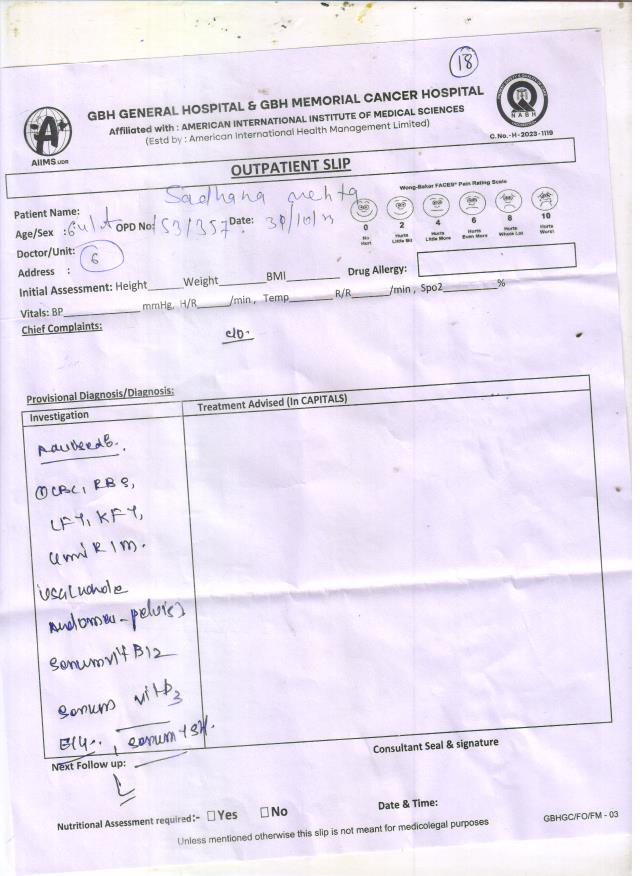 18
GBH GENERAL HOSPITAL & GBH MEMORIAL CANCER HOSPITAL
Affiliated with : AMERICAN INTERNATIONAL INSTITUTE OF MEDICAL SCIENCES
(Estd by : American International Health Management Limited)
AIIMS UDR
NABH
C.No.-H-2023-1119
OUTPATIENT SLIP
Wong-Baker FACES® Pain Rating Scale
0 2 4 6 8 10
No Hurt
Hurts Little Bit
Hurts Little More
Hurts Even More
Hurts Whole Lot
Hurts Worst
Patient Name: Sadhana Mehta
Age/Sex : OPD No: 153/357 Date: 30/10/
Doctor/Unit: 6
Address :
Drug Allergy:
Initial Assessment: Height Weight BMI
Vitals: BP mmHg, H/R /min , Temp R/R /min , Spo2 %
Chief Complaints:
c/o.
Provisional Diagnosis/Diagnosis:
Investigation
Treatment Advised (In CAPITALS)
① CBC, RBS,
LFT, KFT,
Urine R/M.
USG (whole
Abdomen - pelvis)
Serum vit B12
Serum vit D3
ECG., Serum TSH.
Next Follow up:
Consultant Seal & signature
Date & Time:
Nutritional Assessment required:- ☐Yes ☐No
Unless mentioned otherwise this slip is not meant for medicolegal purposes
GBHGC/FO/FM - 03